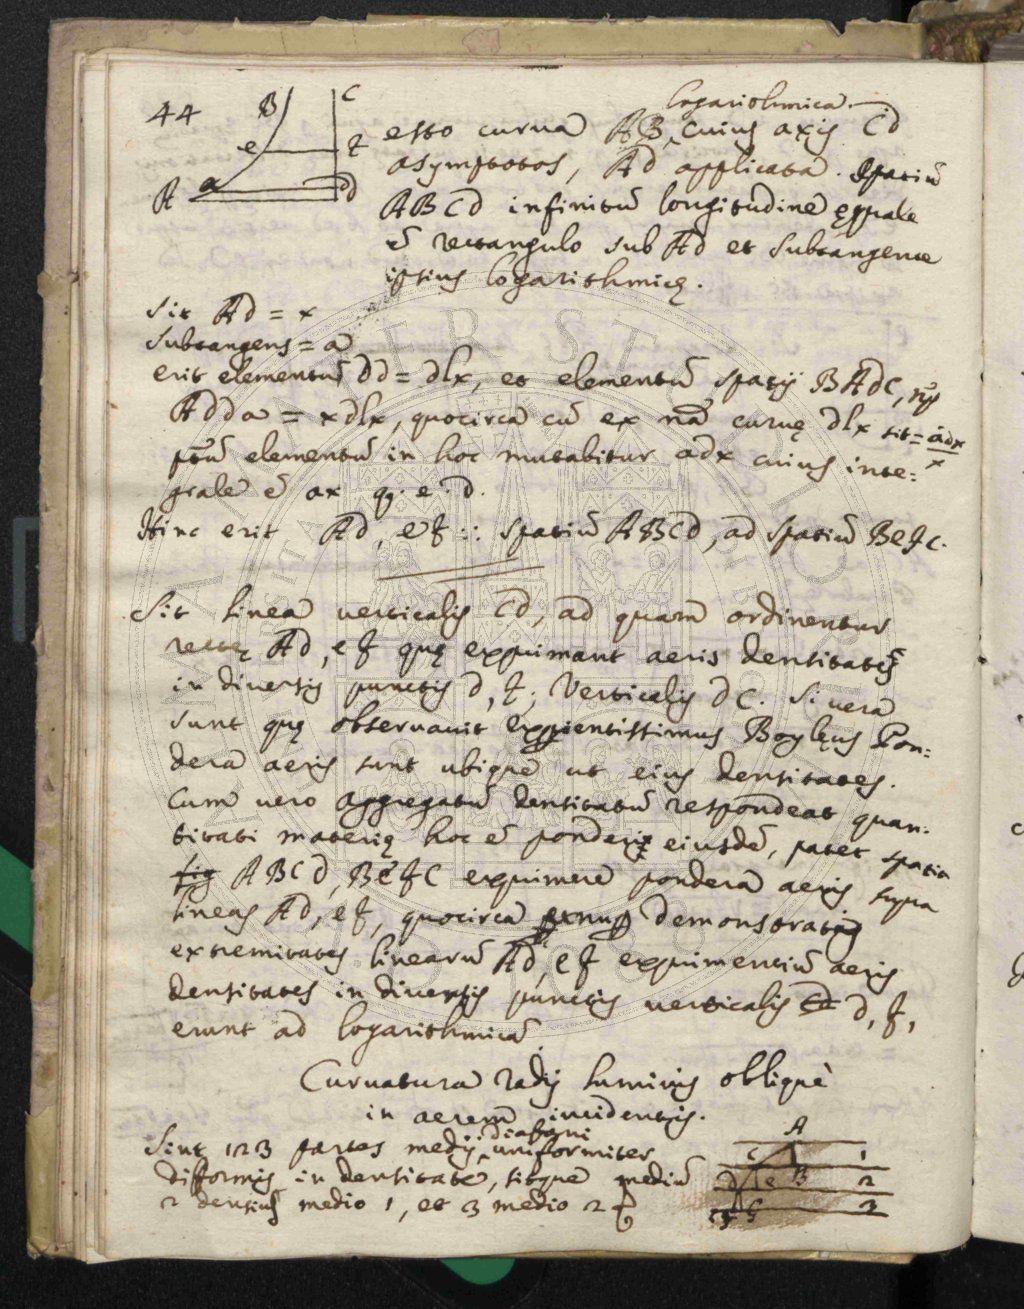 44
B C
e f
A a d
logarithmica
esto curva AB, cuius axis Cd
asymptotos, Ad applicata. Spatiū
ABCd infinitū longitudine ęquale
ē rectangulo sub Ad et subtangente
ipsius logarithmicę.
Sit Ad = x
subtangens = a
erit elementū Dd = dlx, et elementū spatij BAdC,
ADda = xdlx, quocirca cū ex nā curvę dlx sit = adx/x
elementū in hoc mutabitur adx cuius inte:
grale ē ax q. e. d.
Hinc erit Ad, ef :: spatiū ABCd, ad spatiū BefC.
Sit linea verticalis Cd, ad quam ordinentur
rectę Ad, ef quę exprimant aeris densitates
in diversis punctis d, f; verticalis dC. Si vera
sunt quę observavit Boyleus Pon:
dera aeris sunt ubique ut eius densitates.
Cum vero aggregatū densitatū respondeat quan:
titati materię hoc ē ponderi eiusdē, patet spatia
ABCd, BefC exprimere pondera aeris supra
lineas Ad, ef, quocirca demonstratis
extremitates linearū Ad, ef exprimentiū aeris
densitates in diversis punctis verticalis d, f,
erunt ad logarithmicā
Curvatura radij luminis obliquè
in aerem incidentis.
diafani
Sint 123 partes medij uniformiter
difformis in densitate, sitque mediū
2 densius medio 1, et 3 medio 2
A
C 1
D e B 2
G 3